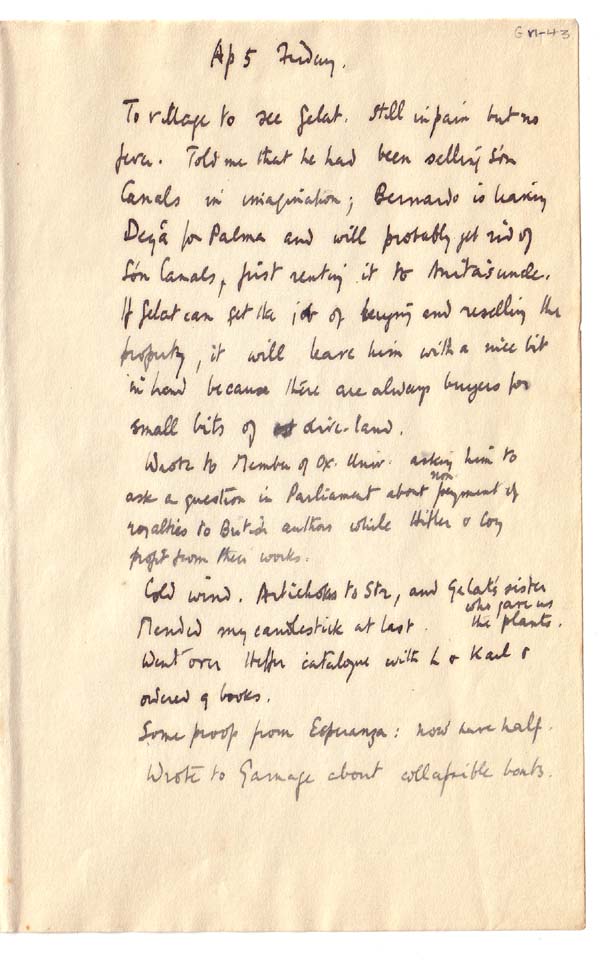 GM-43
Ap 5 Friday.
To village to see Gelat. Still in pain but no
fever. Told me that he had been selling Són
Canals in imagination; Bernardo is leaving
Deyá for Palma and will probably get rid of
Són Canals, first renting it to Anita's uncle.
If Gelat can get the job of buying and reselling the
property, it will leave him with a nice bit
in hand because there are always buyers for
small bits of olive-land.
Wrote to Member of Ox. Univ. asking him to
ask a question in Parliament about non payment of
royalties to British authors while Hitler & Coy
profit from their works.
Cold wind. Artichokes to Str, and Gelat's sister
who gave us
Mended my candlestick at last. the plants.
Went over Heffer catalogue with L & Karl &
ordered 9 books.
Some proofs from Esperanza: now have half.
Wrote to Gamage about collapsible boats.